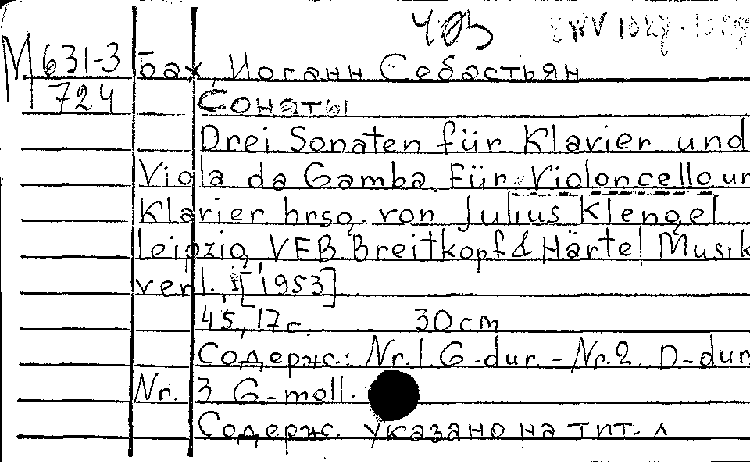 403 BWV 1027-1029
М 631-3 Бах, Иоганн Себастьян
724 Сонаты
Drei Sonaten für Klavier und
Viola da Gamba. Für Violoncello un
Klavier hrsg. von Julius Klengel
Leipzig, VEB Breitkopf & Härtel Musik
verl. [1953]
45, 17 с. 30 cm
Содерж.: Nr. 1. G-dur. - Nr. 2. D-dur
Nr. 3 G-moll.
Содерж. указано на тит. л